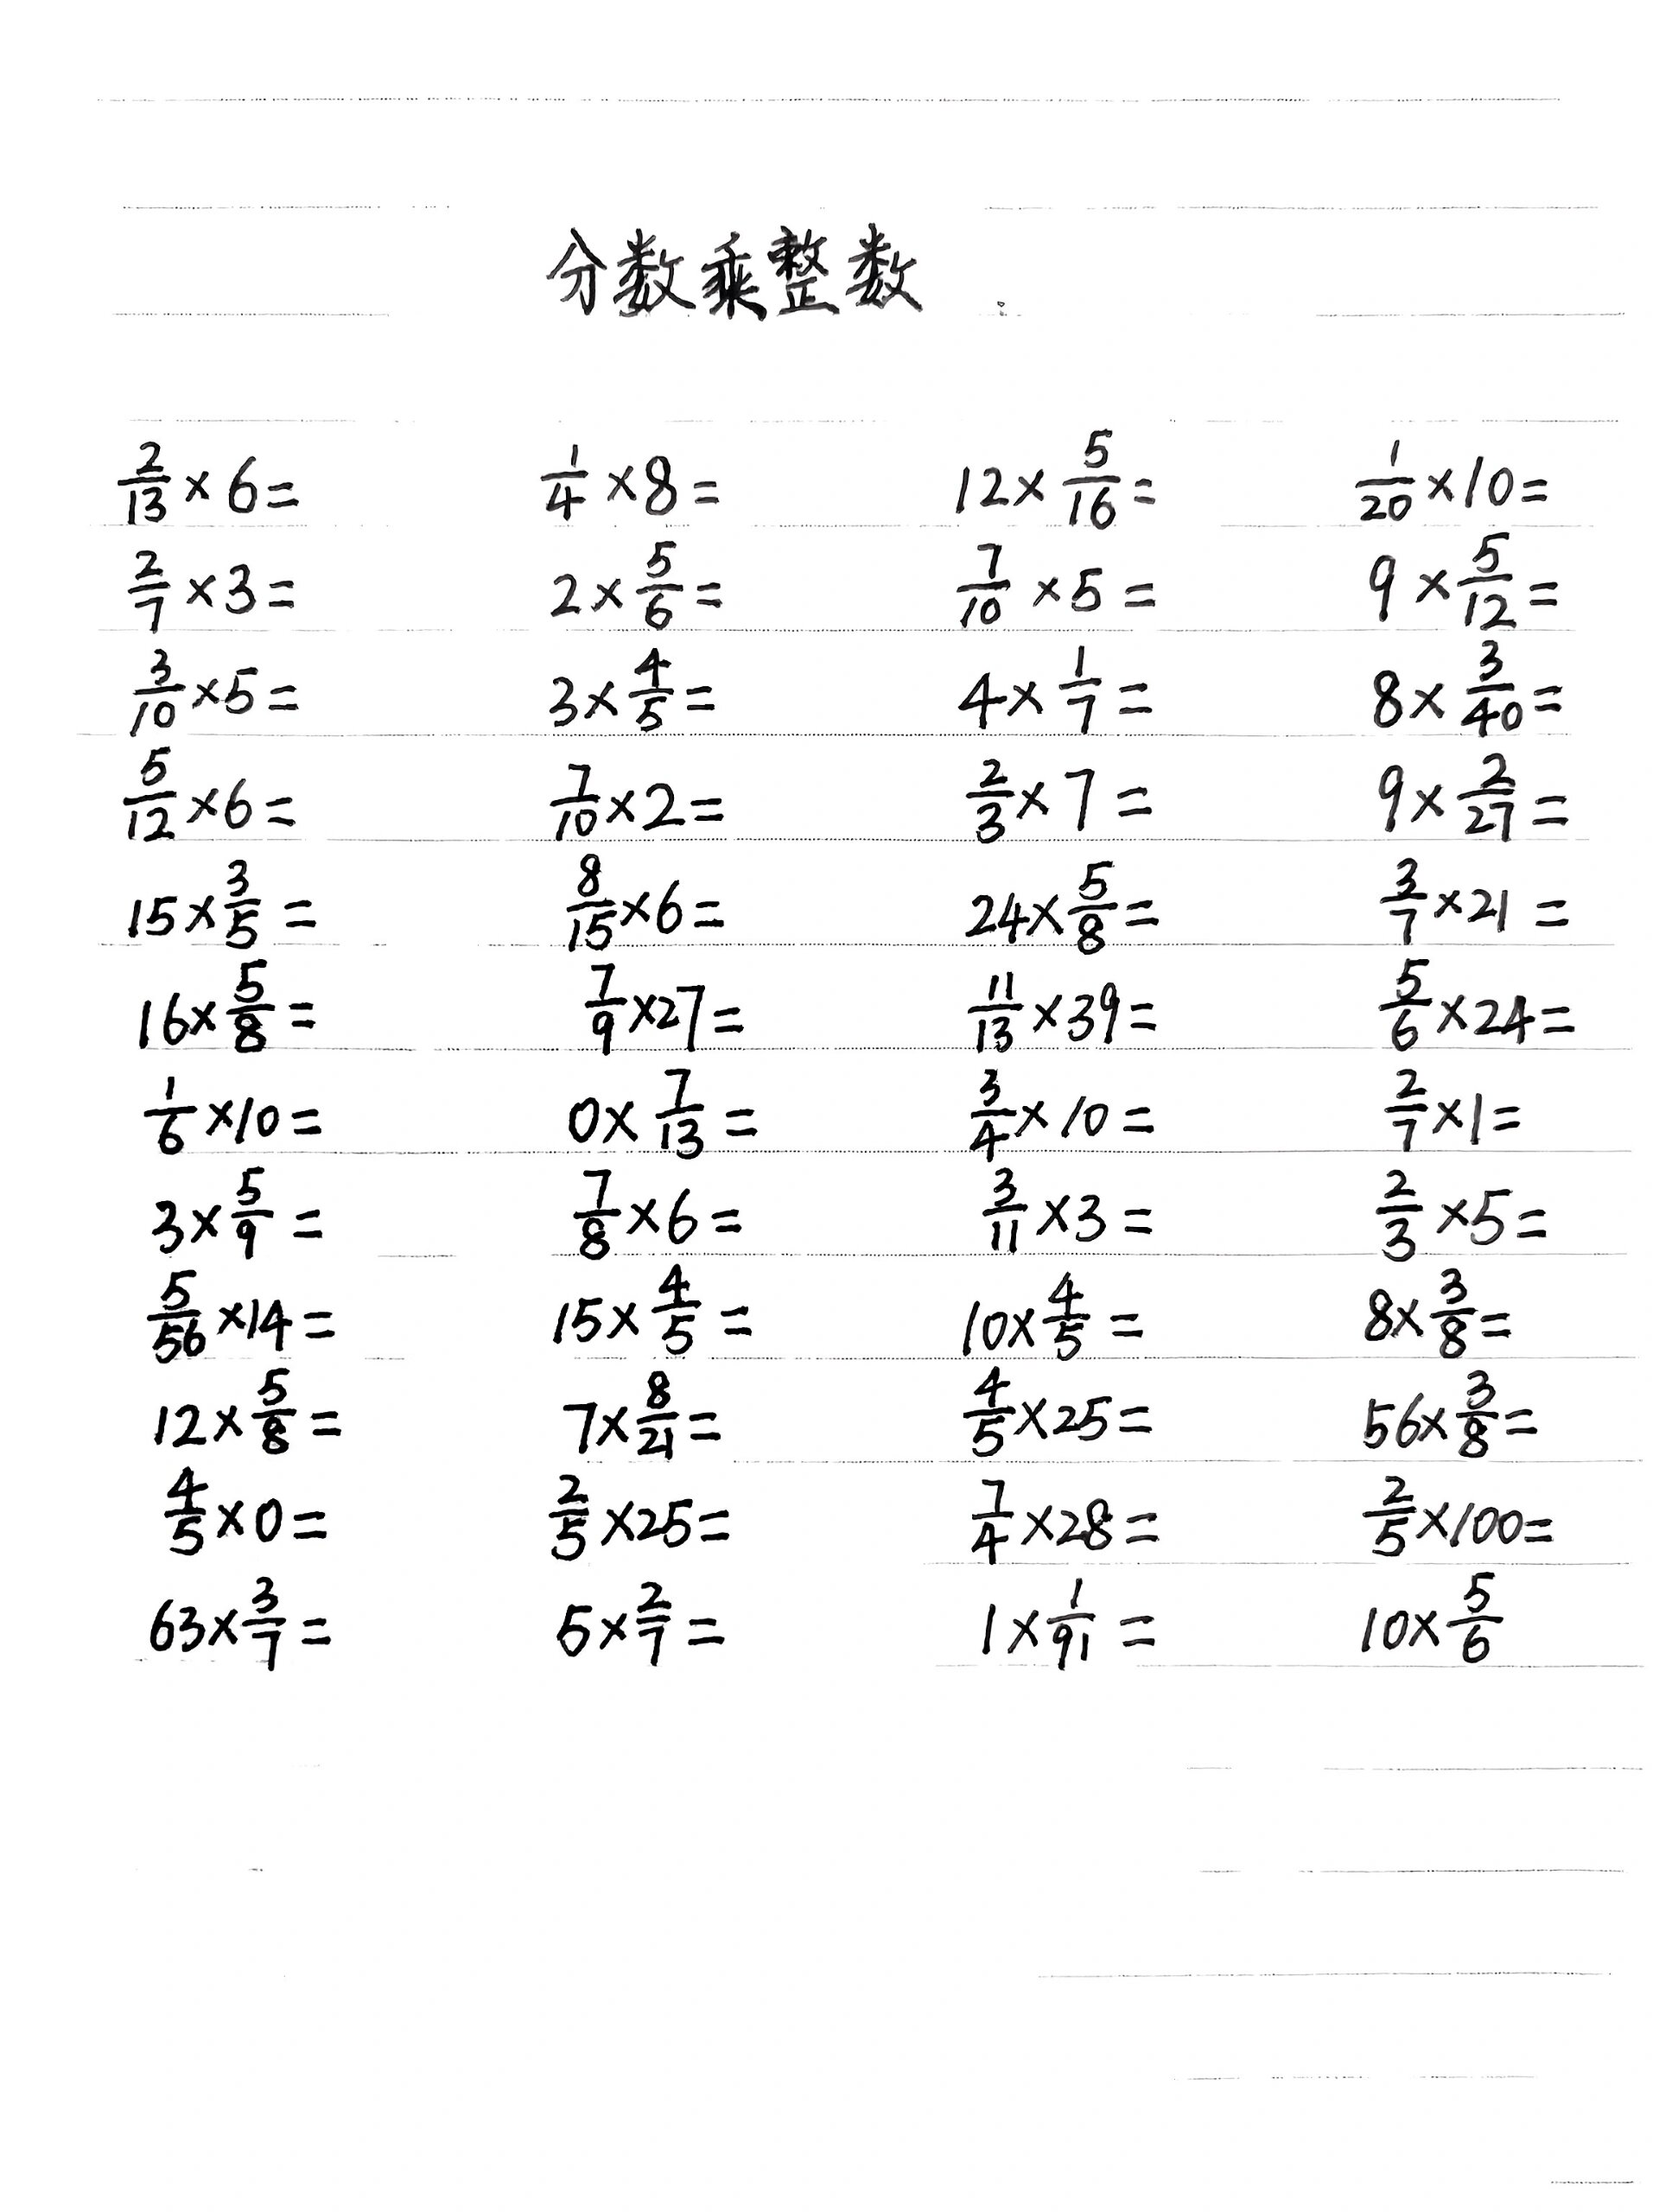 分数乘整数
2/13 × 6 = 1/4 × 8 = 12 × 5/16 = 1/20 × 10 =
2/7 × 3 = 2 × 5/6 = 7/10 × 5 = 9 × 5/12 =
3/10 × 5 = 3 × 4/5 = 4 × 1/7 = 8 × 3/40 =
5/12 × 6 = 7/10 × 2 = 2/3 × 7 = 9 × 2/27 =
15 × 3/5 = 8/15 × 6 = 24 × 5/8 = 3/7 × 21 =
16 × 5/8 = 7/9 × 27 = 11/13 × 39 = 5/6 × 24 =
1/6 × 10 = 0 × 7/13 = 3/4 × 10 = 2/7 × 1 =
3 × 5/9 = 7/8 × 6 = 3/11 × 3 = 2/3 × 5 =
5/56 × 14 = 15 × 4/5 = 10 × 4/5 = 8 × 3/8 =
12 × 5/8 = 7 × 8/21 = 4/5 × 25 = 56 × 3/8 =
4/5 × 0 = 2/5 × 25 = 7/4 × 28 = 2/5 × 100 =
63 × 3/7 = 5 × 2/7 = 1 × 1/91 = 10 × 5/6